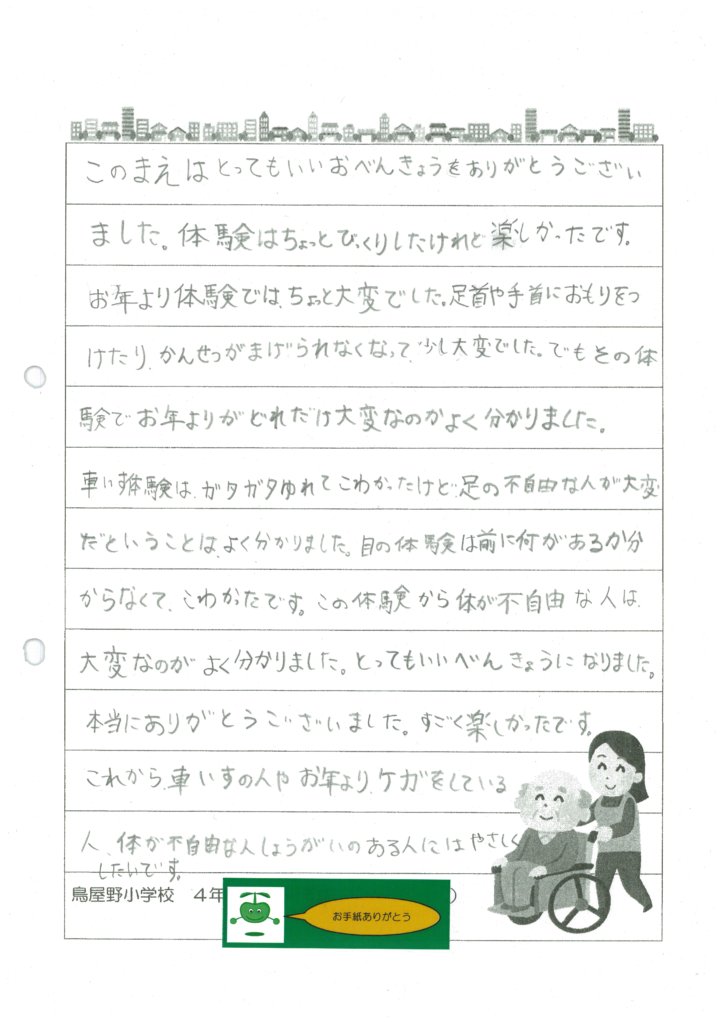 このまえはとってもいいおべんきょうをありがとうござい
ました。体験はちょっとびっくりしたけれど楽しかったです。
お年より体験では、ちょっと大変でした。足首や手首におもりをつ
けたり、かんせつがまげられなくなって、少し大変でした。でもその体
験でお年よりがどれだけ大変なのかよく分かりました。
車いす体験は、ガタガタゆれてこわかったけど、足の不自由な人が大変
だということは、よく分かりました。目の体験は前に何があるか分
からなくて、こわかたです。この体験から体が不自由な人は、
大変なのがよく分かりました。とってもいいべんきょうになりました。
本当にありがとうございました。すごく楽しかったです。
これから、車いすの人やお年より、ケガをしている
人、体が不自由な人しょうがいのある人にはやさしく
したいです。
鳥屋野小学校 4年 )
お手紙ありがとう